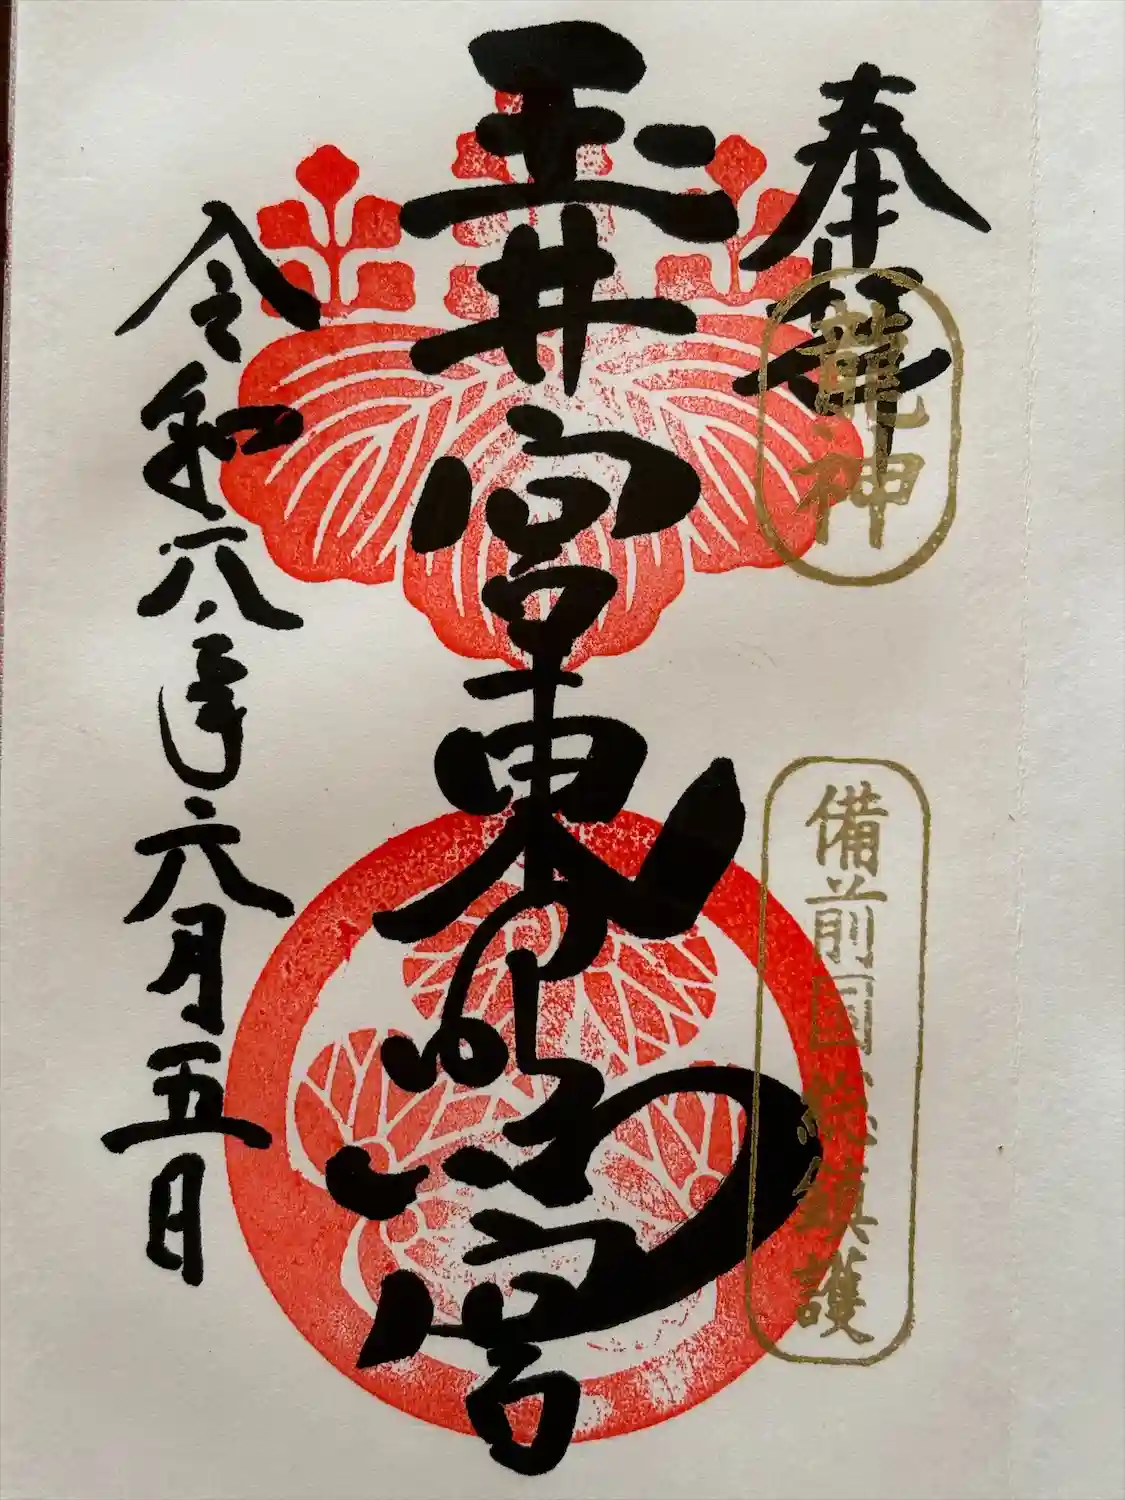 奉拝
龍神
備前国総鎮護
玉井宮東照宮
令和八年六月五日